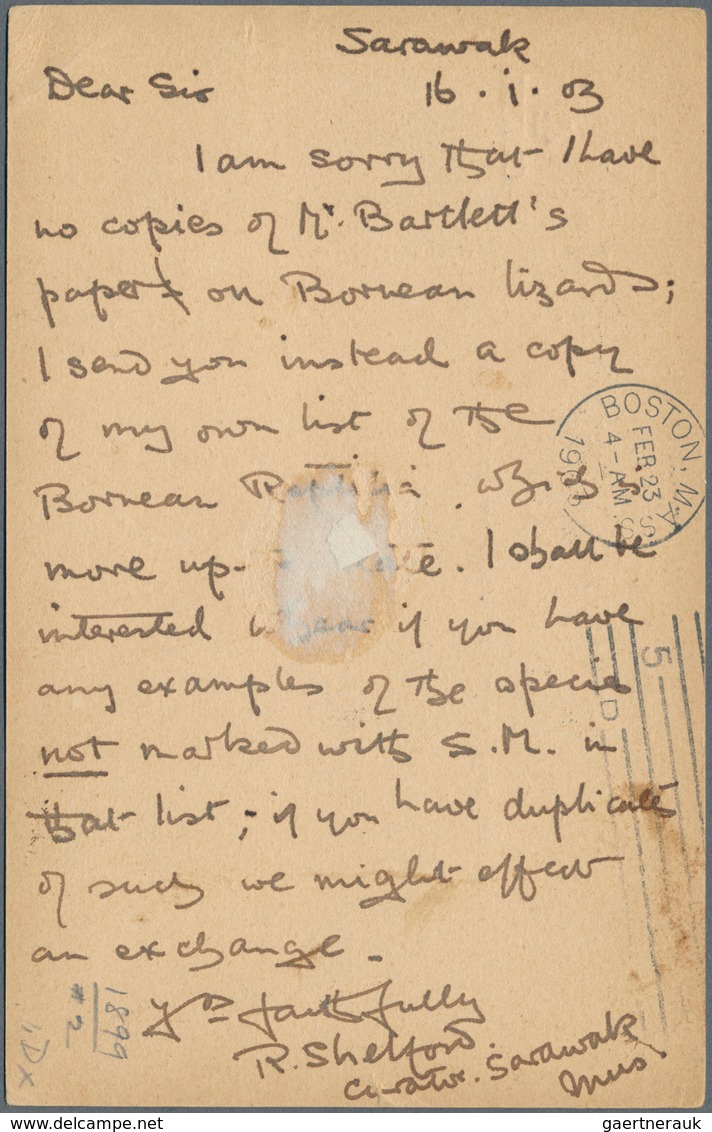 Sarawak
Dear Sir
16 . i . 03
I am sorry that I have
no copies of Mr. Bartlett's
paper on Bornean lizards;
I send you instead a copy
of my own list of the
Bornean Reptilia which is
more up- . I shall be
interested if you have
any examples of the species
not marked with S.M. in
that list; if you have duplicates
of such we might effect
an exchange.
Yrs faithfully
R. Shelford.
Curator. Sarawak
Mus.
BOSTON, MASS
FEB 23
4-AM
1903
5
D
1899
#2
gaertnerauk